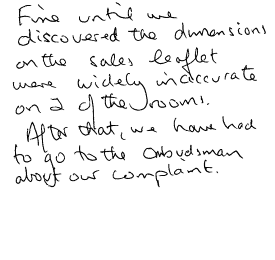 Fine until we
discovered the dimensions
on the sales leaflet
were widely inaccurate
on 2 of the rooms.
After that, we have had
to go to the Ombudsman
about our complaint.